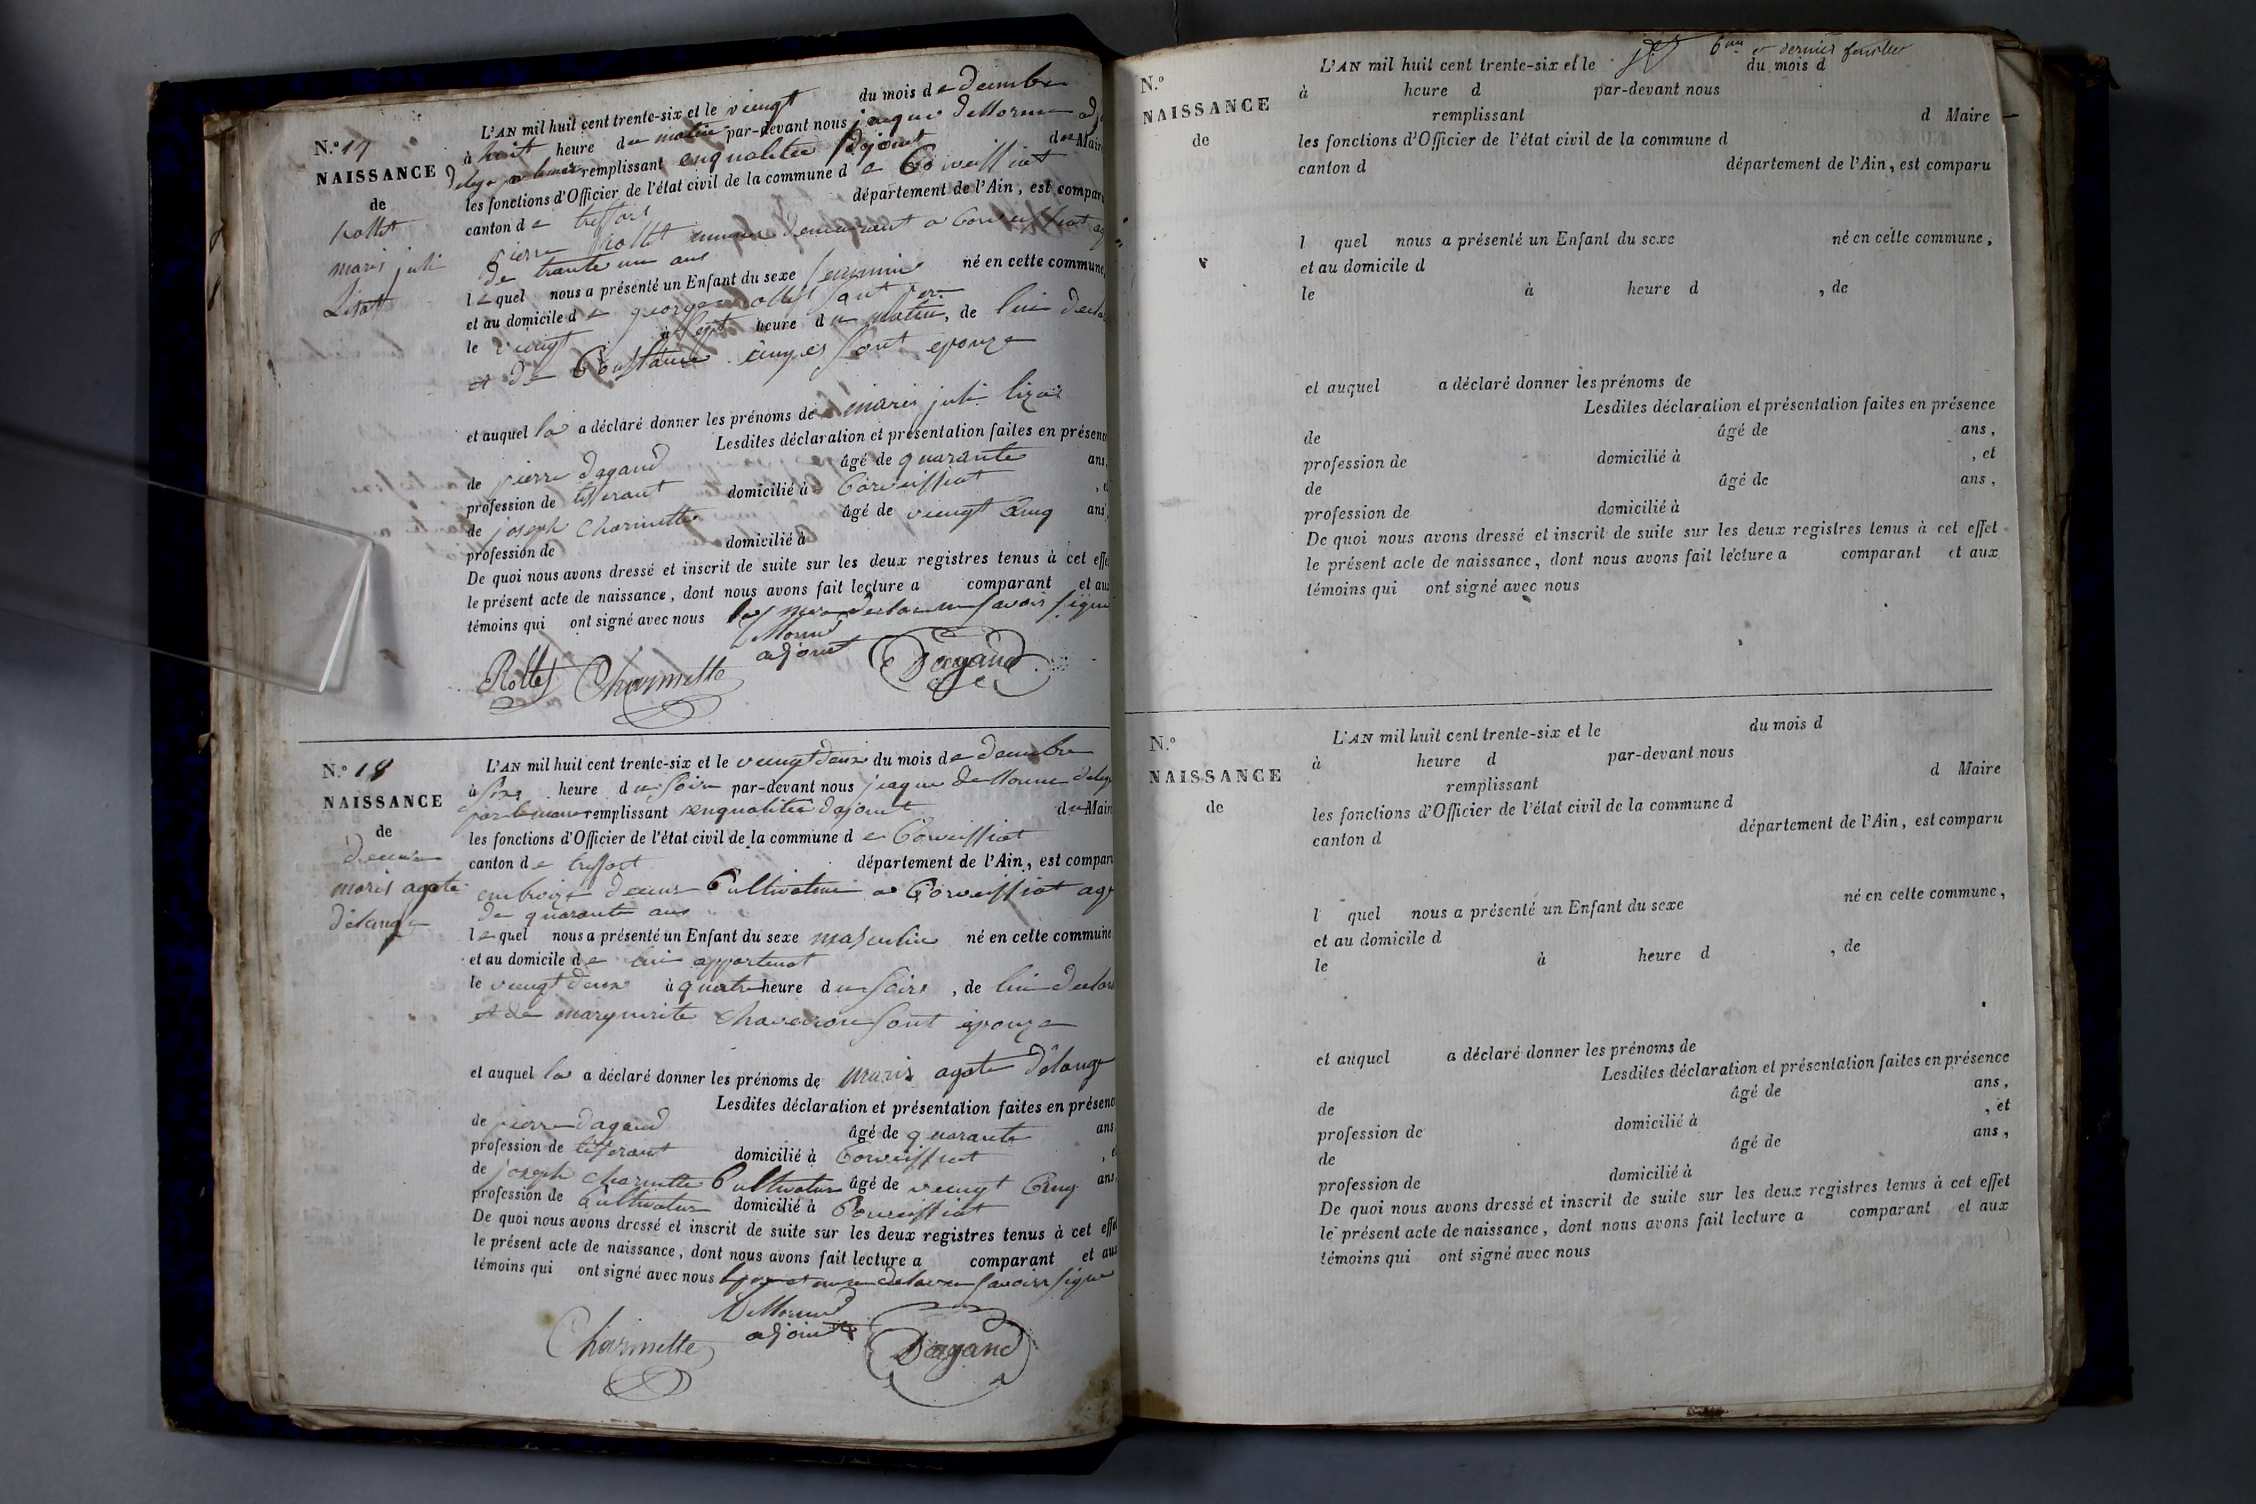 N.º 17
NAISSANCE
de
rollet
marie juli
Lisat
L'AN mil huit cent trente-six et le vieugt du mois de decembre
à huit heure du matin par-devant nous jaque deMorne
remplissant enqualitée dajoint du Maire
les fonctions d'Officier de l'état civil de la commune de Corveissiat
canton de treffort département de l'Ain, est comparu
pierre rollet demeurant a Corveissiat
de trante un ans
lequel nous a présenté un Enfant du sexe feminin né en cette commune,
et au domicile de george rollet
le vieugt à sept heure du matin, de lui declar
et de Constance sont epouze
et auquel la a déclaré donner les prénoms de marie juli liza
Lesdites déclaration et présentation faites en présence
de pierre dagand âgé de quarante ans,
profession de tisserant domicilié à Corveissiat
de joseph Charmette âgé de vieugt Cinq ans,
profession de domicilié à
De quoi nous avons dressé et inscrit de suite sur les deux registres tenus à cet effet
le présent acte de naissance, dont nous avons fait lecture a comparant et aux
témoins qui ont signé avec nous savoir signe
adjoint
Rollet Charmette Dagand
N.º 18
NAISSANCE
de
marie agate
délange
L'AN mil huit cent trente-six et le vieugt deux du mois de decembre
à six heure du soire par-devant nous jaque deMorne deleg
par le maire remplissant enqualitée dajoint du Maire
les fonctions d'Officier de l'état civil de la commune de Corveissiat
canton de treffort département de l'Ain, est comparu
Cultivateur a Corveissiat age
de quarante ans
lequel nous a présenté un Enfant du sexe masculin né en cette commune
et au domicile de lui appartenat
le vieugt deux à quatre heure du soire, de lui declar
et de marguirite sont epouze
et auquel la a déclaré donner les prénoms de marie agate délange
Lesdites déclaration et présentation faites en présence
de pierre dagand âgé de quarante ans
profession de tisserant domicilié à Corveissiat
de joseph charmette Cultivateur âgé de vieugt Cinq ans,
profession de Cultivateur domicilié à Corveissiat
De quoi nous avons dressé et inscrit de suite sur les deux registres tenus à cet effet
le présent acte de naissance, dont nous avons fait lecture a comparant et aux
témoins qui ont signé avec nous savoir signe
DeMorne
adjoint
Charmette Dagand
6me et dernier feuillet
N.º
NAISSANCE
de
L'AN mil huit cent trente-six et le du mois d
à heure d par-devant nous
remplissant d Maire
les fonctions d'Officier de l'état civil de la commune d
canton d département de l'Ain, est comparu
l quel nous a présenté un Enfant du sexe né en cette commune,
et au domicile d
le à heure d , de
et auquel a déclaré donner les prénoms de
Lesdites déclaration et présentation faites en présence
de âgé de ans,
profession de domicilié à , et
de âgé de ans,
profession de domicilié à
De quoi nous avons dressé et inscrit de suite sur les deux registres tenus à cet effet
le présent acte de naissance, dont nous avons fait lecture a comparant et aux
témoins qui ont signé avec nous
N.º
NAISSANCE
de
L'AN mil huit cent trente-six et le du mois d
à heure d par-devant nous
remplissant d Maire
les fonctions d'Officier de l'état civil de la commune d
canton d département de l'Ain, est comparu
l quel nous a présenté un Enfant du sexe né en cette commune,
et au domicile d
le à heure d , de
et auquel a déclaré donner les prénoms de
Lesdites déclaration et présentation faites en présence
de âgé de ans,
profession de domicilié à , et
de âgé de ans,
profession de domicilié à
De quoi nous avons dressé et inscrit de suite sur les deux registres tenus à cet effet
le présent acte de naissance, dont nous avons fait lecture a comparant et aux
témoins qui ont signé avec nous